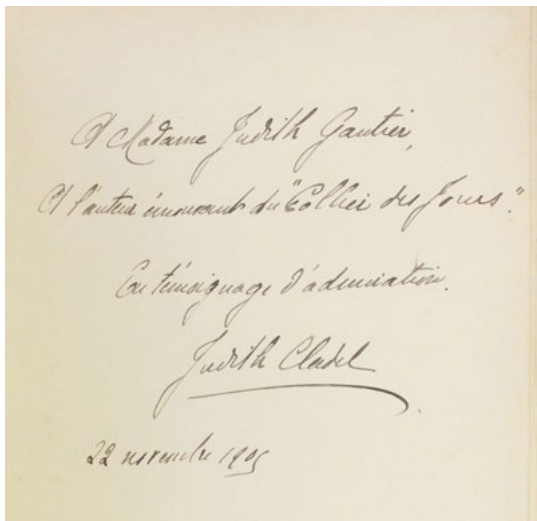 A Madame Judith Gautier,
A l'auteur émouvant du "Collier des Jours".
En témoignage d'admiration.
Judith Cladel
22 novembre 1905